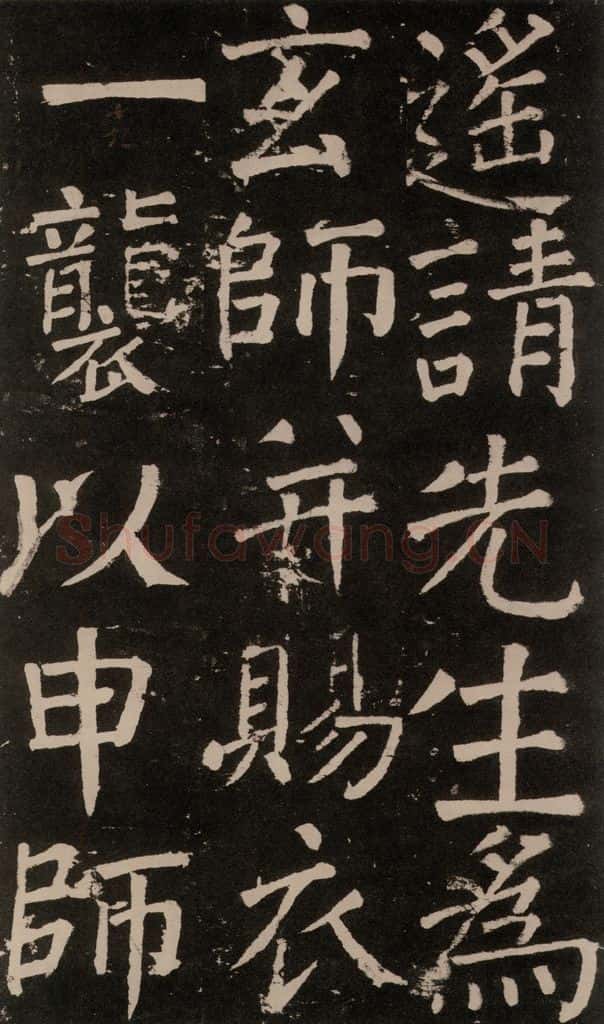 遙請先生爲
玄師并賜衣
一襲以申師
Shufawang.CN